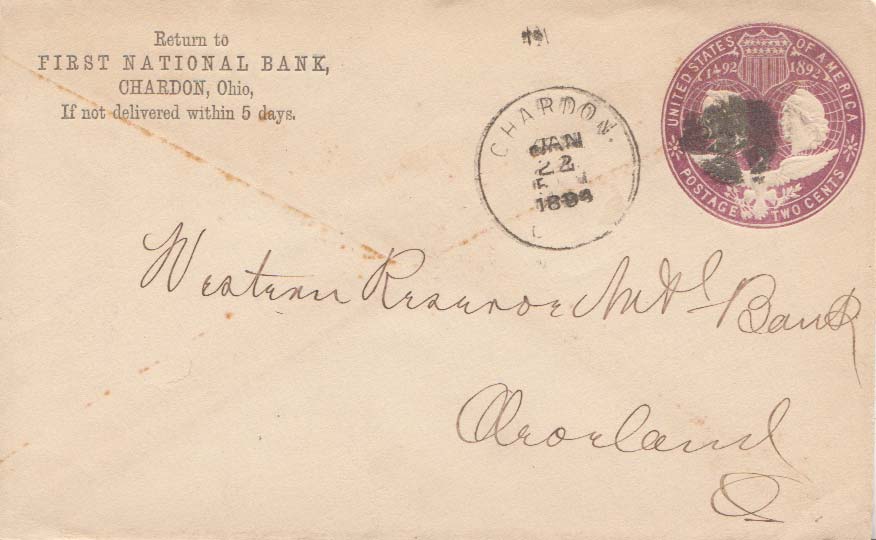 Return to
FIRST NATIONAL BANK,
CHARDON, Ohio,
If not delivered within 5 days.
CHARDON.
JAN
22
1894
UNITED STATES OF AMERICA
1492 1892
POSTAGE TWO CENTS
Western Reserve Natl Bank
Cleveland
O